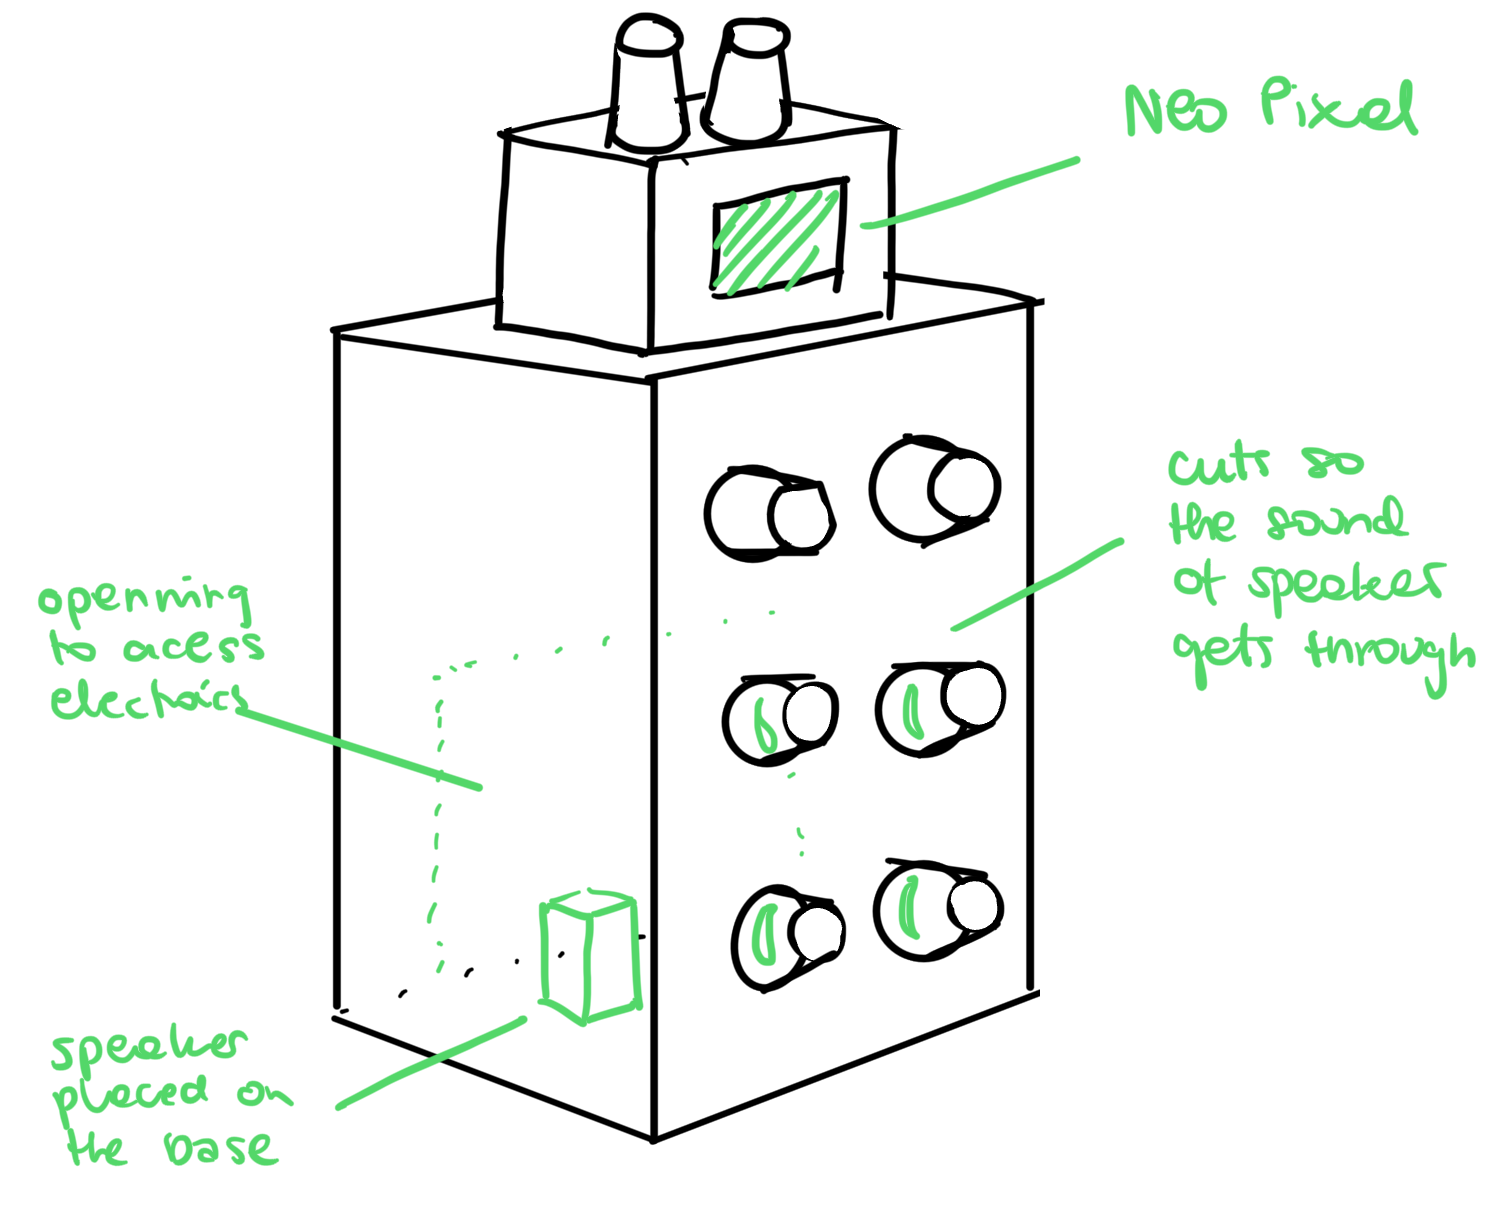 Neo Pixel
cuts so
the sound
of speaker
gets through
openning
to acess
electronics
speaker
placed on
the base